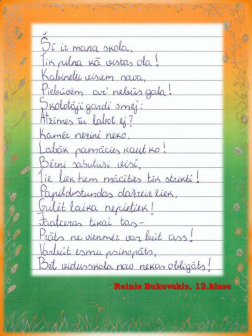 Šī ir mana skola,
Tik pilna kā vistas ola!
Kabinetu visiem sava,
Piebūvēm arī nebūs gala!
Skolotāji gardi smej:
Atzīmes tu labot ej?
Kamēr nezini neko,
Labāk pamācies kaut ko!
Bērni sašutuši visi,
Te liek tiem mācīties tik strikti!
Papildstundas dažreiz liek,
Gulēt laika nepietiek!
tikai tas -
Prāts ne vienmēr var būt ass!
Varbūt esmu psihopāts,
Bet vidusskola nav nekas obligāts!
Reinis Bukovskis, 12.klase